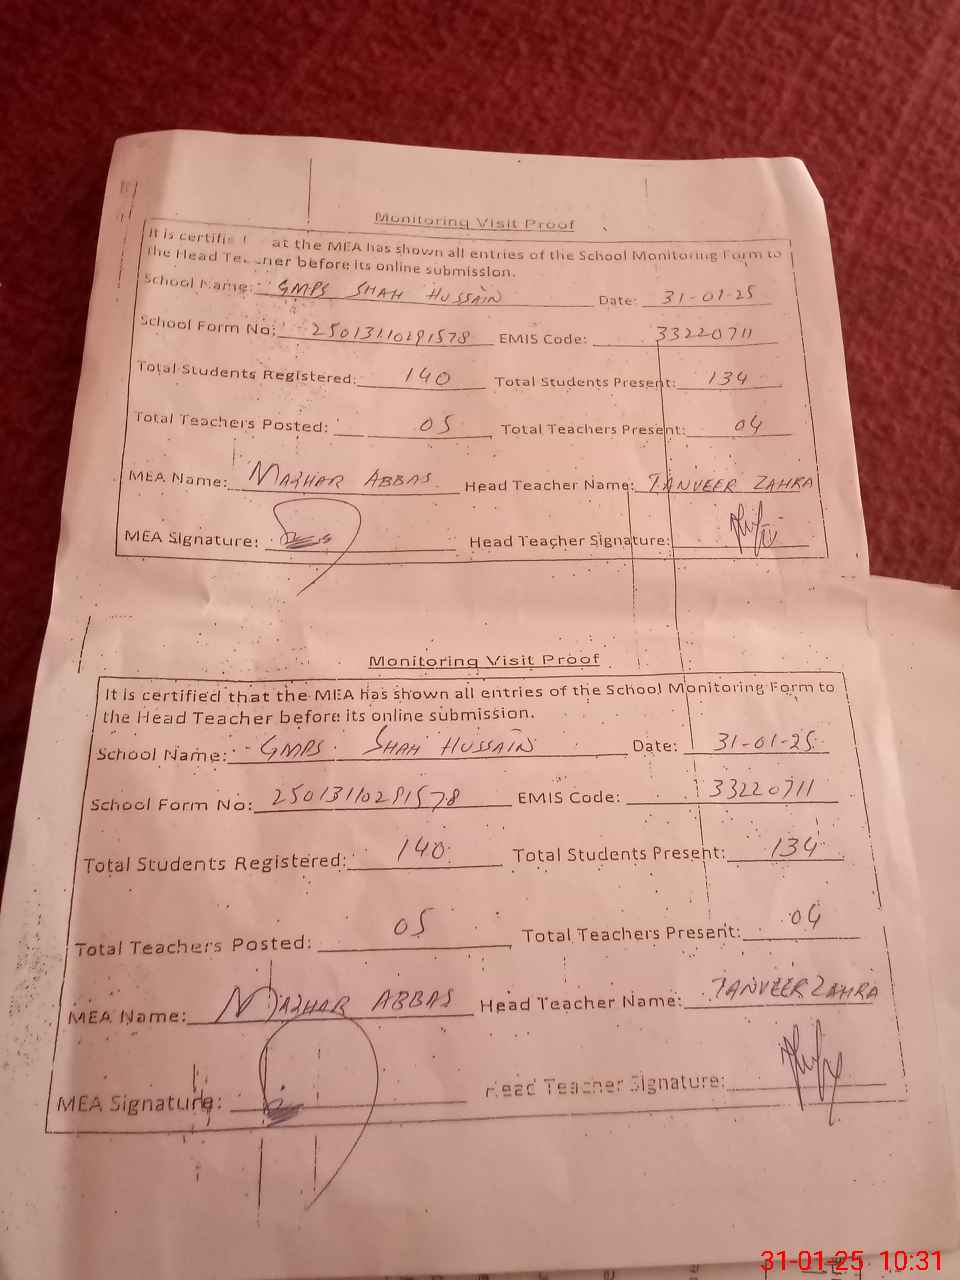 Monitoring Visit Proof
It is certifie at the MEA has shown all entries of the School Monitoring Form to
the Head Te ner before its online submission.
School Name: GMPS SHAH HUSSAIN Date: 31-01-25
School Form No: 25013110291578 EMIS Code: 33220711
Total Students Registered: 140 Total Students Present: 134
Total Teachers Posted: 05 Total Teachers Present: 04
MEA Name: MAZHAR ABBAS Head Teacher Name: TANVEER ZAHRA
MEA Signature: Head Teacher Signature:
Monitoring Visit Proof
It is certified that the MEA has shown all entries of the School Monitoring Form to
the Head Teacher before its online submission.
School Name: GMPS SHAH HUSSAIN Date: 31-01-25
School Form No: 25013110291578 EMIS Code: 33220711
Total Students Registered: 140 Total Students Present: 134
Total Teachers Posted: 05 Total Teachers Present: 04
MEA Name: MAZHAR ABBAS Head Teacher Name: TANVEER ZAHRA
MEA Signature: Head Teacher Signature:
31-01-25 10:31